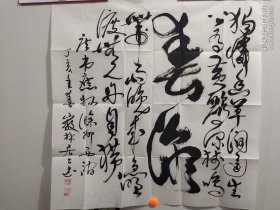 獨憐幽草澗邊生
上有黃鸝深樹鳴
春潮
帶雨晚來急野
渡無人舟自橫
唐韋應物滁州西澗
丁亥